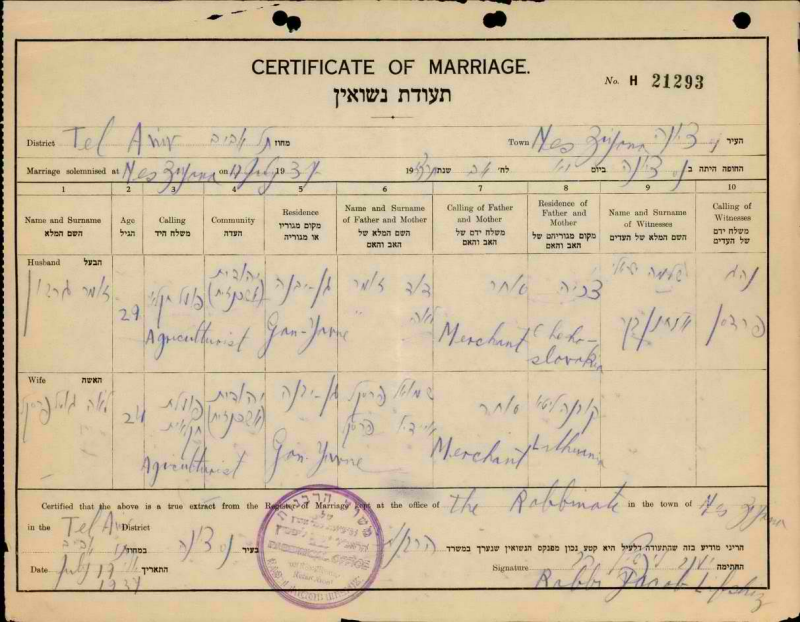 CERTIFICATE OF MARRIAGE.
No. H 21293
תעודת נשואין
District Tel Aviv תל אביב מחוז Town Nes Ziyona נס ציונה העיר
Marriage solemnised at Nes Ziyona on July 1937 לח' אב שנת ביום נס ציונה החופה היתה ב
1 2 3 4 5 6 7 8 9 10
Name and Surname
השם המלא
Age
הגיל
Calling
משלח היד
Community
העדה
Residence
מקום מגוריו
או מגוריה
Name and Surname
of Father and Mother
השם המלא של
האב והאם
Calling of Father
and Mother
משלח ידם של
האב והאם
Residence of
Father and
Mother
מקום מגוריהם של
האב והאם
Name and Surname
of Witnesses
השם המלא של העדים
Calling of
Witnesses
משלח ידם
של העדים
Husband הבעל
זומר גרשון
29
פועל חקלאי
Agriculturist
יהודית
(אשכנזית)
גן-יבנה
Gan-Yavne
דוד זומר
לאה
סוחר
Merchant
צכיה
Chekho-
slovakia
שלמה
נהג
פרדסן
Wife האשה
לאה
24
פועלת
חקלאית
Agriculturist
יהודית
(אשכנזית)
גן-יבנה
Gan-Yavne
שמואל
סוחר
Merchant
ליטא
Lithuania
Certified that the above is a true extract from the Register of Marriage kept at the office of the Rabbinate in the town of Nes Ziyona
in the Tel Aviv District
הריני מודיע בזה שהתעודה דלעיל היא קטע נכון מפנקס הנשואין שנערך במשרד הרבנות בעיר נס ציונה במחוז תל אביב
Date July 1937 התאריך
Signature Rabbi Jacob Lifshiz החתימה